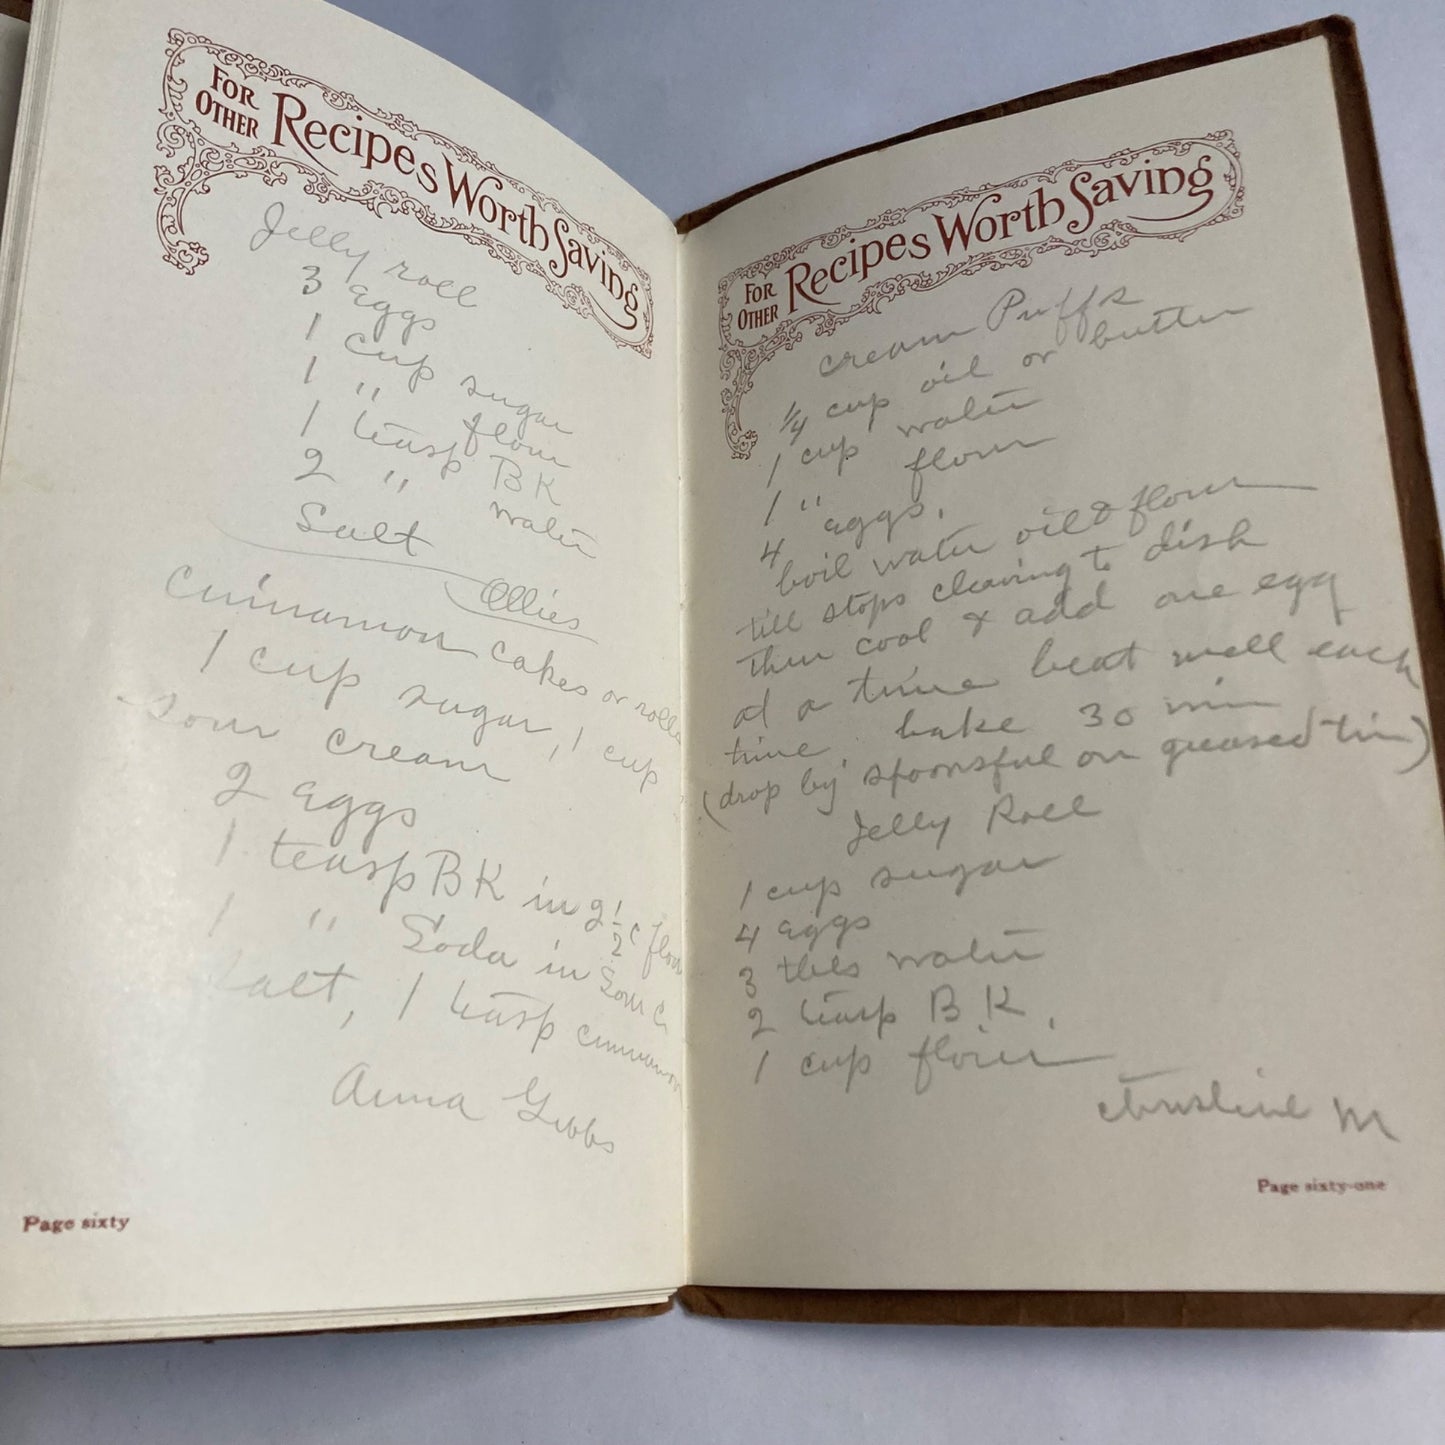 For Other Recipes Worth Saving
Jelly roll
3 eggs
1 cup sugar
1 " flour
1 teasp BK
2 " water
Salt
Ollies
Cinnamon cakes or rolls
1 cup sugar, 1 cup
sour cream
2 eggs
1 teasp BK in 2 1/2 c flour
1 " Soda in Sour C
salt, 1 teasp cinnamon
Anna Gibbs
Page sixty
For Other Recipes Worth Saving
Cream Puffs
1/4 cup oil or butter
1 cup water
1 " flour
4 eggs.
boil water oil & flour
till stops cleaving to dish
then cool & add one egg
at a time beat well each
time. bake 30 min
(drop by spoonsful on greased tin)
Jelly Roll
1 cup sugar
4 eggs
3 tbls water
2 teasp BK.
1 cup flour
Christine M
Page sixty-one